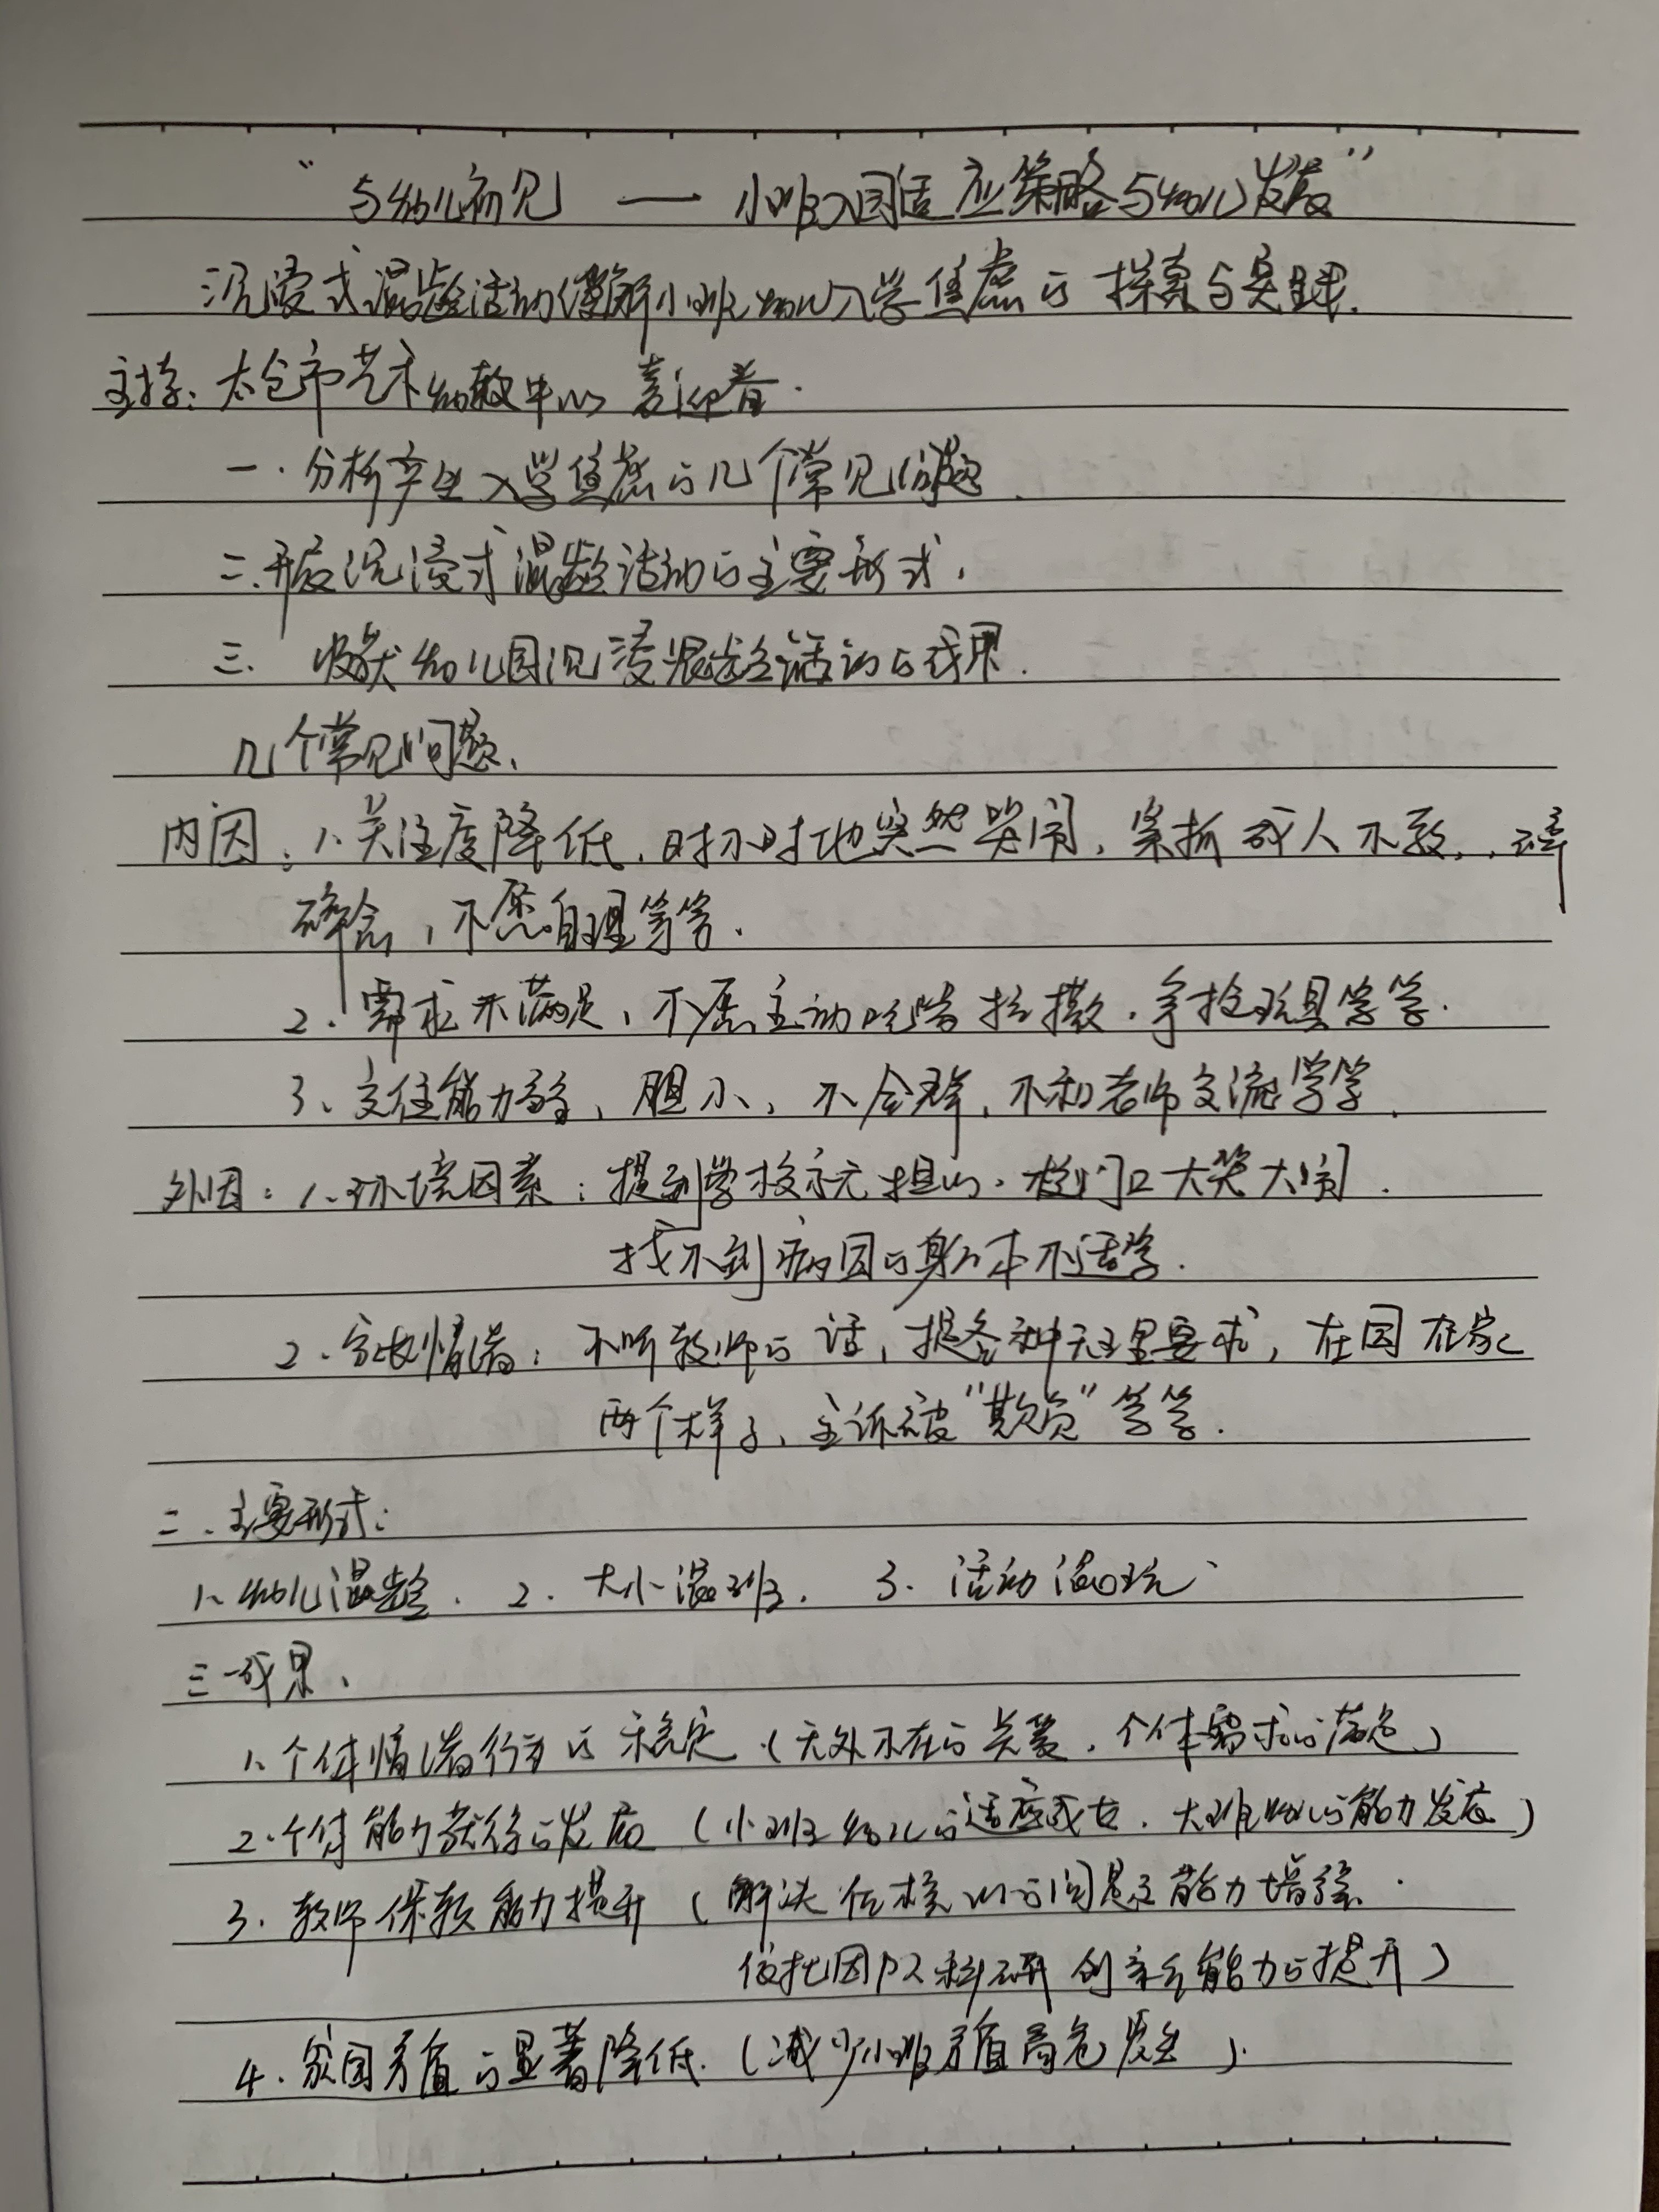 “与幼儿初见 — 小班入园适应策略与幼儿发展”
沉浸式混龄活动缓解小班幼儿入学焦虑的探索与实践.
主持：太仓市艺术幼教中心 袁迎春.
一.分析产生入学焦虑的几个常见问题.
二.开展沉浸式混龄活动的主要形式.
三. 收获幼儿园沉浸混龄活动的成果.
几个常见问题、
内因：1.关注度降低，时不时地突然哭闹，紧抓成人不放，碎
碎念，不愿自理等等.
2.需求未满足，不愿主动吃喝拉撒.争抢玩具等等.
3、交往能力弱、胆小，不合群，不和老师交流等等.
外因：1.环境因素：提到学校就无担心.校门口大哭大闹.
找不到病因的身体不适等.
2.家长情绪：不听教师的话，提各种无理要求，在园在家
两个样子、主诉被“欺负”等等.
二.主要形式：
1、幼儿混龄. 2. 大小混班. 3. 活动混玩、
三.成果、
1、个体情绪行为的稳定（无处不在的关爱.个体需求的满足）
2.个体能力获得的发展（小班幼儿的适应成长.大班幼儿的能力发展）
3.教师保教能力提升（解决位核心的问题能力增强.
依托团队科研创新能力的提升）
4.家园矛盾的显著降低.（减少小班矛盾高危发生）.